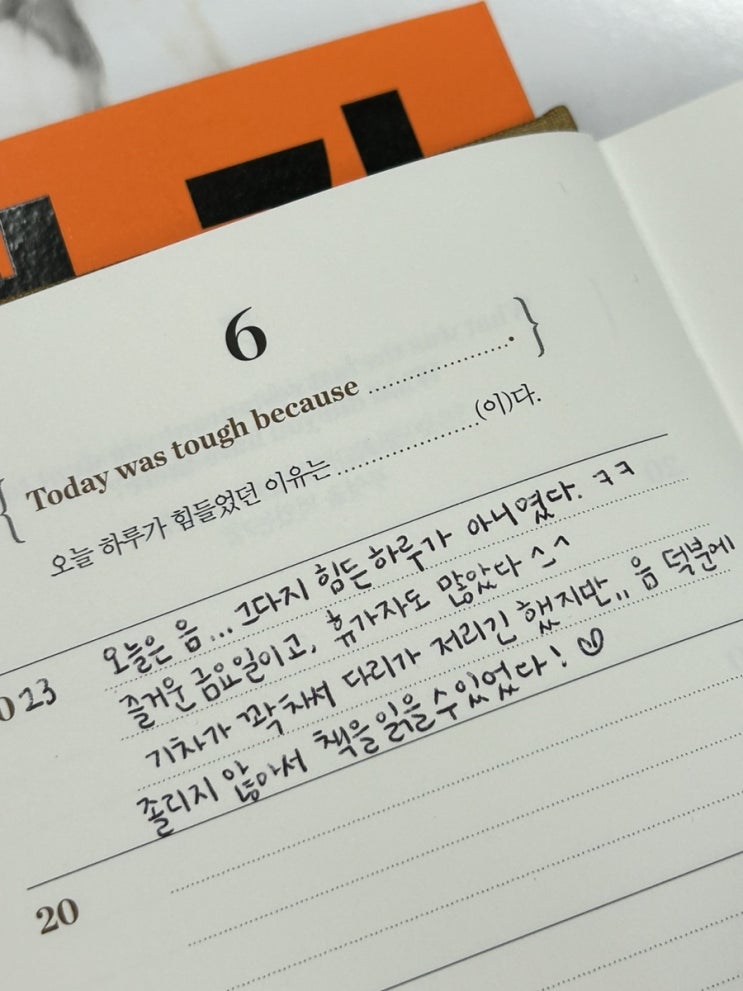 6
{ Today was tough because ........................ . }
오늘 하루가 힘들었던 이유는 ........................ (이)다.
오늘은 음... 그다지 힘든 하루가 아니였다. ㅋㅋ
2023 즐거운 금요일이고, 휴가자도 많았다 ^_^
기차가 꽉 차서 다리가 저리긴 했지만,, 음 덕분에
졸리지 않아서 책을 읽을 수 있었다! ♡
20